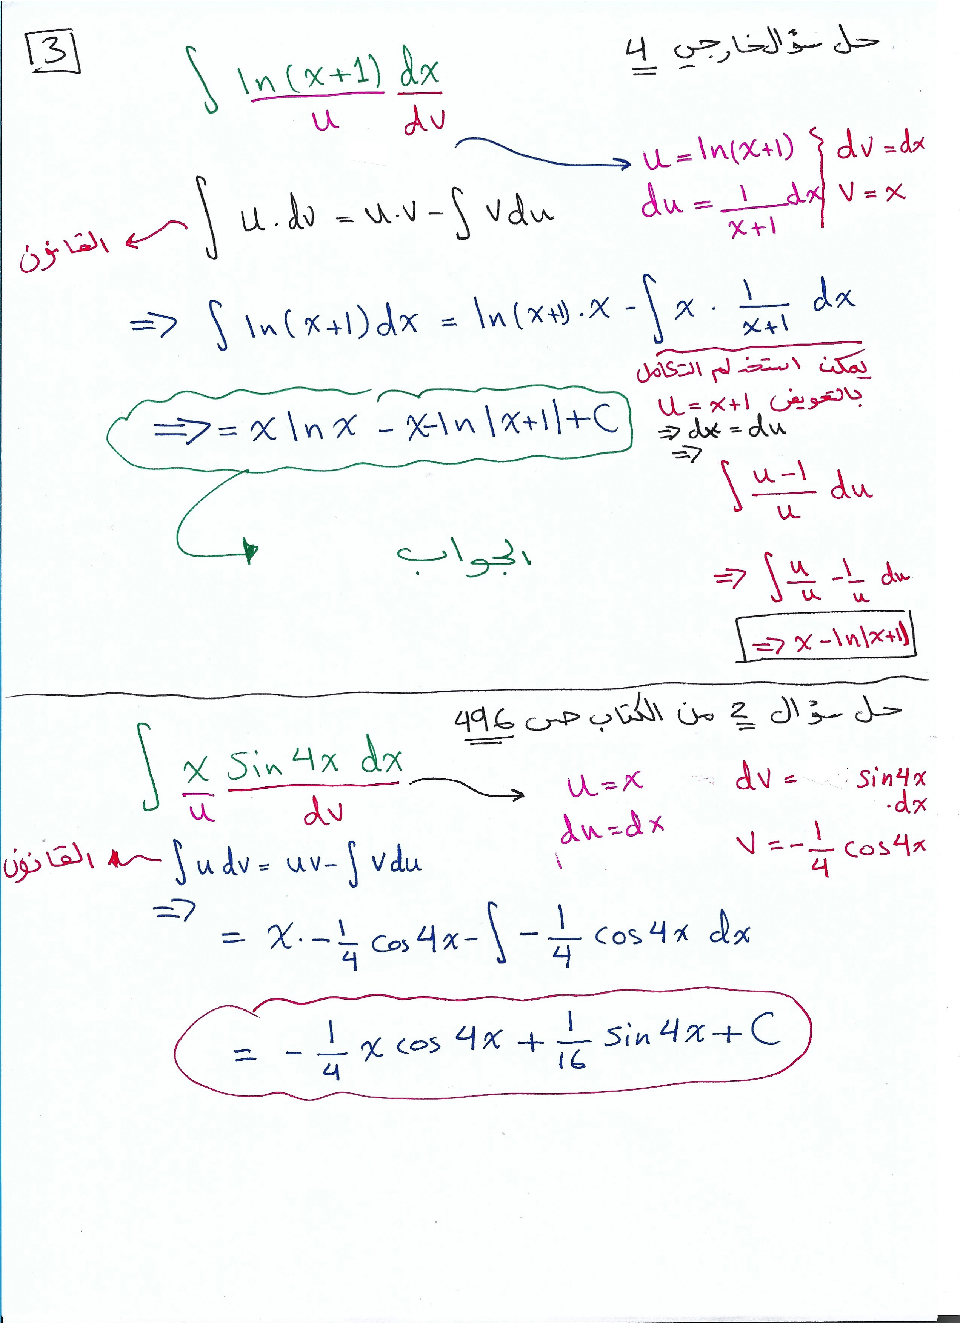 3
حل سؤال خارجي 4
∫ ln(x+1) dx
u dv
u = ln(x+1) } dv = dx
du = 1/(x+1) dx } v = x
القانون ← ∫ u.dv = u.v - ∫ v du
=> ∫ ln(x+1) dx = ln(x+1).x - ∫ x . 1/(x+1) dx
يمكن استخدام التكامل
بالتعويض u = x+1
=> dx = du
=>
∫ (u-1)/u du
=> ∫ u/u - 1/u du
=> x - ln|x+1|
=> = x ln x - x-ln|x+1|+C
الجواب
حل سؤال 2 من الكتاب ص 496
∫ x sin 4x dx
u dv
u = x dv = sin4x .dx
du = dx v = -1/4 cos4x
القانون ∫ u dv = uv - ∫ v du
=>
= x.-1/4 cos 4x - ∫ -1/4 cos 4x dx
= -1/4 x cos 4x + 1/16 sin 4x + C